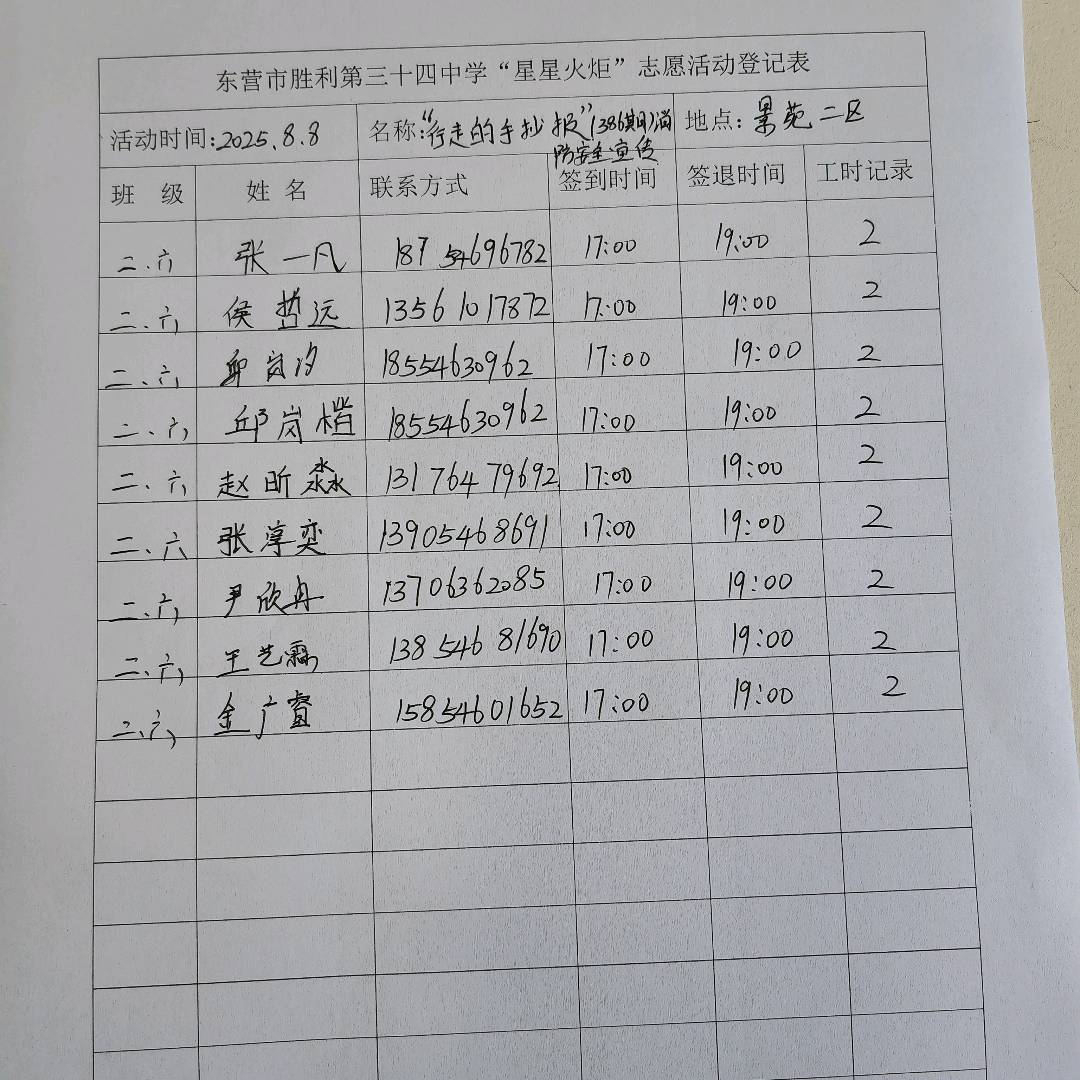 东营市胜利第三十四中学“星星火炬”志愿活动登记表
活动时间:2025.8.8 名称:“行走的手抄报”(386期)消防安全宣传 地点:景苑二区
班 级 姓 名 联系方式 签到时间 签退时间 工时记录
二、六 张一凡 18754696782 17:00 19:00 2
二、六 侯哲远 13561017872 17:00 19:00 2
二、六 邱岚汐 18554630962 17:00 19:00 2
二、六 邱岚楷 18554630962 17:00 19:00 2
二、六 赵昕淼 13176479692 17:00 19:00 2
二、六 张淳奕 13905468691 17:00 19:00 2
二、六 尹欣冉 13706362085 17:00 19:00 2
二、六 王艺霖 13854681690 17:00 19:00 2
二、六 金广睿 15854601652 17:00 19:00 2